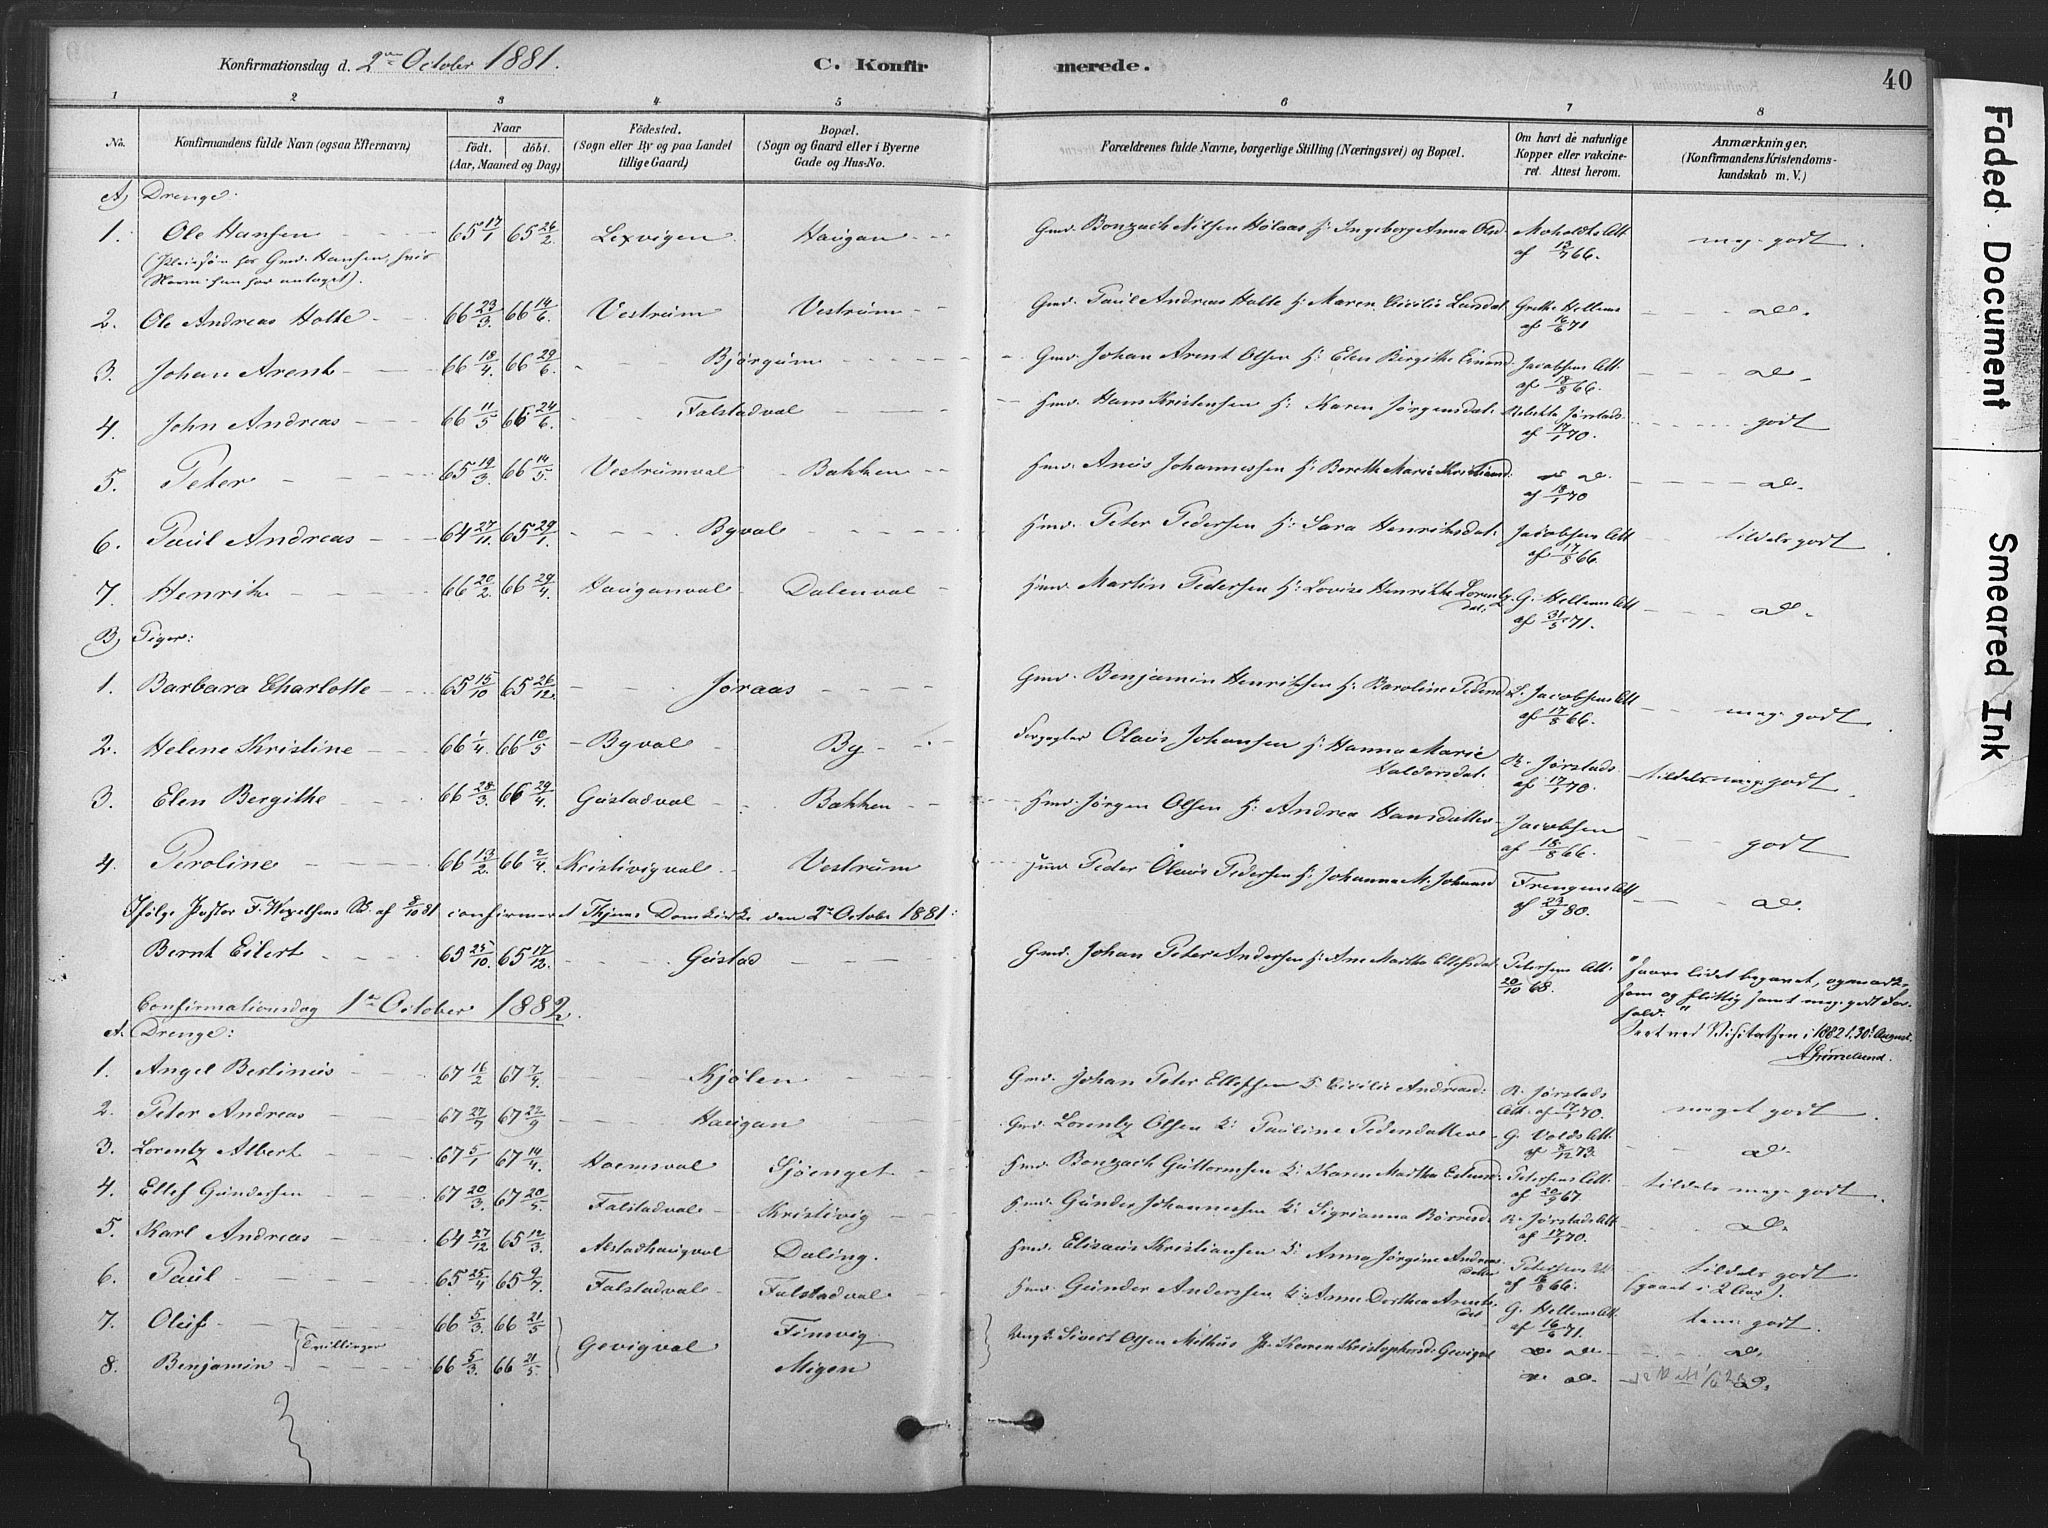 Konfirmationsdag d. 2den October 1881. C. Konfir merede. 40
1 2 3 4 5 6 7 8
No. Konfirmandens fulde Navn (ogsaa Efternavn) Naar födt. döbt. (Aar, Maaned og Dag) Födested. (Sogn eller By og paa Landet tillige Gaard) Bopæl. (Sogn og Gaard eller i Byerne Gade og Hus-No. Forældrenes fulde Navne, borgerlige Stilling (Næringsvei) og Bopæl. Om havt de naturlige Kopper eller vakcineret. Attest herom. Anmærkninger. (Konfirmandens Kristendomskundskab m. V.)
A) Drenge.
1. Ole Hansen 65 17/1 65 26/2 Lexvigen Haugan Gmd. Bonzach Nilsen Hølaas h: Ingeborg Anna Olsd Moholdts Att af 13/7 66. meg. godt
(Pleiesøn for Gmd. Hansen, hvis
Navn han har antaget).
2. Ole Andreas Holte 66 23/3 66 14/6 Vestrum Vestrum Gmd. Paul Andreas Holte h: Maren Cicilie Lundat Grethe Hellems af 16/6 71 do.
3. Johan Arent 66 18/4 66 29/6 Bjørgum Gmd. Johan Arent Olsen h: Elen Bergithe Einard. Jacobsens Att. af 18/8 66. do.
4. John Andreas 66 11/5 66 24/6 Falstadval Hmd. Hans Kristensen h: Karen Jørgensdat: Rebekka Jørstads af 17/1 70. godt
5. Peter 65 19/3 66 14/5 Vestrumval Bakken Hmd. Anus Johannessen h: Berethe Marie Kristiansd: do do. af 18/1 70 do.
6. Paul Andreas 64 27/11 65 29/1 Byval Hmd. Peter Pedersen h: Sara Henriksdat: Jacobsens Att af 17/8 66. tildels godt
7. Henrik 66 20/2 66 29/4 Hauganval Dalenval Hmd. Martin Pedersen h: Lovise Henrikke Lorentz dat: G. Hellems Att af 31/5 71. do.
B) Piger:
1. Barbara Charlotte 65 15/10 65 26/12 Joraas Gmd. Benjamin Henriksen h: Baroline Pedersd L. Jacobsens Att af 17/8 66. meg. godt
2. Helene Kristine 66 1/4 66 10/5 Byval By Forpagter Olaus Johansen h: Hanna Marie Haldorsdat: R. Jørstads af 17/1 70. tildels meg. godt
3. Elen Bergithe 66 28/3 66 29/4 Gustadval Bakken Hmd. Jørgen Olsen h: Andrea Hansdatter Jacobsen af 18/8 66. godt
4. Peroline 66 13/2 66 2/4 Kristivigval Vestrum Hmd. Peder Olaus Pedersen h: Johanna M. Johansd Frengens Att af 23/9 80. do.
Ifølge Pastor F. Wexelsens af 8/10 81 confirmeret Thjems Domkirke den 2den October 1881:
Bernt Eilert 65 25/10 65 17/12 Gustad Gmd. Johan Peter Andersen h: Ane Martha Ellefsdat: Petersens Att. 20/10 68. "Saare lidet begavet, opmærksom og flittig samt meg. godt Forhold."
Seet ved Visitatsen i 1882 d. 30. August.
Confirmationsdag 1ste October 1882.
A. Drenge:
1. Angel Berlinus 67 16/2 67 7/4 Kjølen Gmd. Johan Peter Ellefsen h: Cicilie Andreasd: R. Jørstads Att. af 17/1 70. meget godt
2. Peter Andreas 67 27/7 67 22/9 Haugan Gmd. Lorentz Olsen h: Pauline Pedersdatter G. Volds Att. af 8/12 73. do.
3. Lorentz Albert 67 5/1 67 14/4 Hoemsval Sjøenget Hmd. Bonzach Guttormsen h: Karen Martha Estensd Petersens Att. af 20/9 67. tildels meg. godt
4. Ellef Gundersen 67 20/3 67 20/5 Falstadval Kristivig Hmd. Gunder Johannessen h: Sigrianna Børresd: R. Jørstads Att af 17/1 70. do.
5. Karl Andreas 64 27/12 65 12/3 Alstadhaugval Daling. Hmd. Elisæus Kristiansen h: Anna Jørgine Andreas datter Petersens af 16/8 66. tildels godt (gaaet i 2 Aar).
6. Paul 65 25/4 65 9/7 Falstadval Falstadval Hmd. Gunder Anderssen h: Anne Dorthea Arents dat G. Hellems Att. af 16/6 71. tem. godt.
7. Oluf 66 5/3 66 21/5 Tvillinger Gevigval Finsvig Ungk. Sivert Olsen Milhus Karen Kristophersd: Gevigval do do. do.
8. Benjamin 66 5/3 66 21/5 Migen do do. do.
Faded Document Smeared Ink